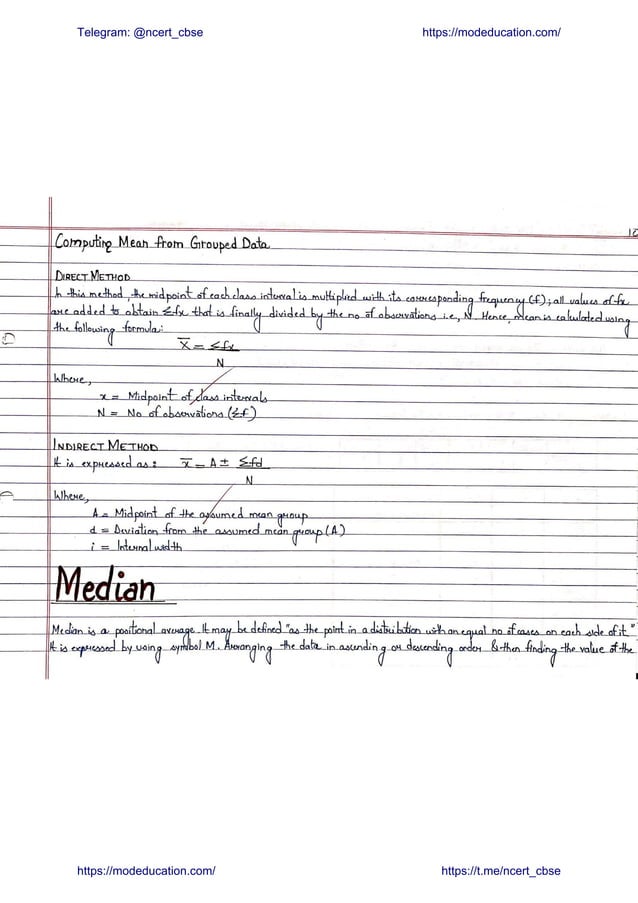 Telegram: @ncert_cbse https://modeducation.com/
Computing Mean from Grouped Data
DIRECT METHOD
In this method, the midpoint of each class interval is multiplied with its corresponding frequency (f); all values of fx
are added to obtain Σfx that is finally divided by the no of observations i.e., N. Hence, mean is calculated using
the following formula:
X̄ = Σfx
N
Where,
x = Midpoint of class intervals
N = No of observations (Σf)
INDIRECT METHOD
It is expressed as: x̄ = A ± Σfd
N
Where,
A = Midpoint of the assumed mean group
d = Deviation from the assumed mean group (A)
i = Internal width
Median
Median is a positional average. It may be defined "as the point in a distribution with an equal no of cases on each side of it."
It is expressed by using symbol M. Arranging the data in ascending or descending order & then finding the value of the
https://modeducation.com/ https://t.me/ncert_cbse